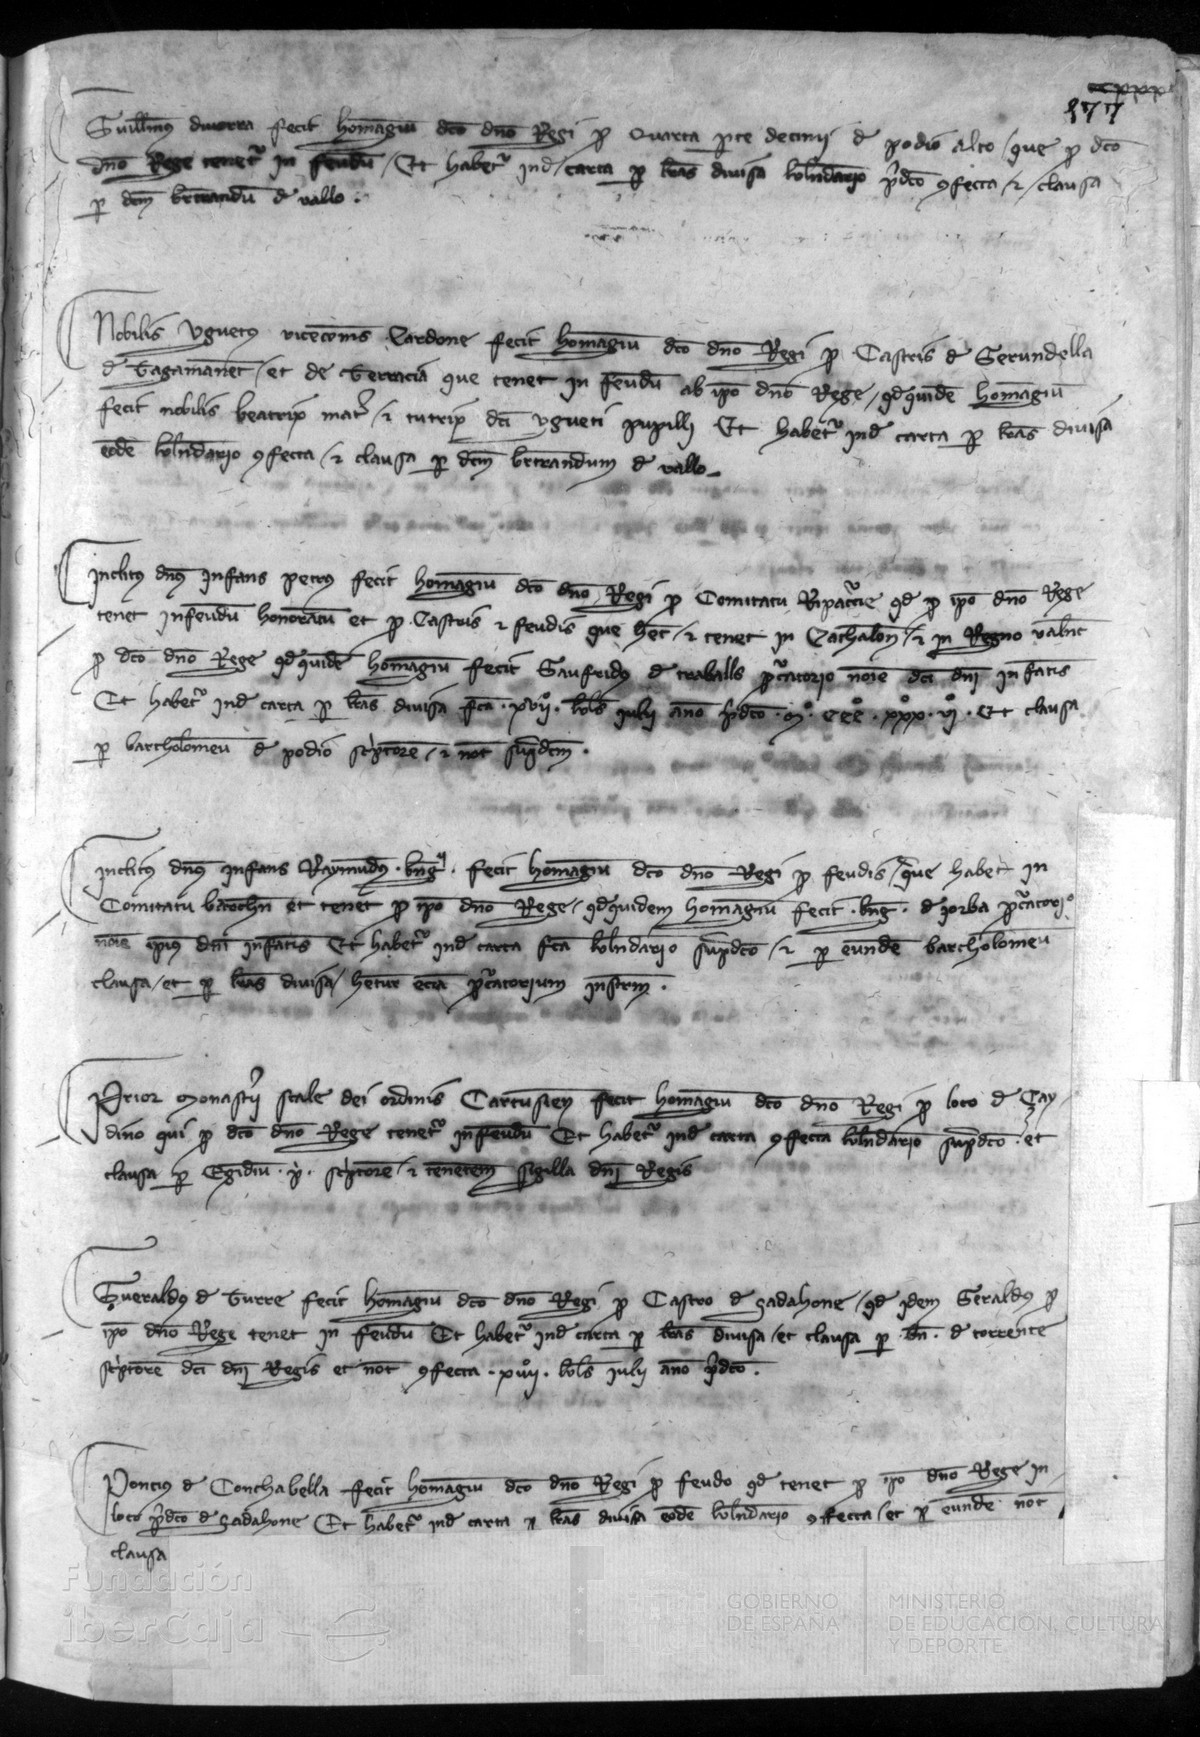 177
Guillmus diuorra fecit homagiu dco dno Regi p Quarta pte decimii d podio alto / que p dco
dno Rege tenetr in feudu / Et habetr ind carta p lras diuisa kalndario pdco 9fecta / et / clausa
p dcm btrandu d vallo .
Nobilis Vguetus vicecoms Cardone fecit homagiu dco dno Regi p Castris d Gerundella
d Tagamanet / et de Terracia que tenet in feudu ab ipo dno Rege / qd quide homagiu
fecit nobilis beatrix matr et tutrix dci vgueti pupilli Et habetr ind carta p lras diuisa
eode kalndario 9fecta / et clausa p dcm btrandum d vallo
Inclitus dns Infans petrus fecit homagiu dco dno Regi p Comitatu Ripacrcie qd p ipo dno Rege
tenet infeudu honoratu et p Castris et feudis que het / et tenet in Cathalon / et in Regno valnt
p dco dno Rege qd quide homagiu fecit Gaufridus d traballs pcatorio noie dci dni infatis
Et habetr ind carta p lras diuisa fca . xvii . kls iulii ano pdco . mo . ccco . xxxo . vio . Et clausa
p bartholomeu d podio scptore / et not supdcm .
Inclitus dns infans Raymudus . bng . fecit homagiu dco dno Regi p feudis / que habet in
Comitatu barchn et tenet p ipo dno Rege / qd quidem homagiu fecit . bng . d iorba pcatorio
noie ipius dni infatis Et habetr ind carta fca kalndario supdco / et p eunde bartholomeu
clausa / et p lras diuisa / hetur ecia pcatorium instrm .
Prior monastii scale dei ordinis Cartusien fecit homagiu dco dno Regi p loco d Cay
dino qui p dco dno Rege tenetr infeudu Et habetr ind carta 9fecta kalndario supdco . et
clausa p Egidiu . p . scptore / et tenetem sigilla dni Regis
Gueraldus d Turre fecit homagiu dco dno Regi p Castro d zadahone / qd idem Geraldus p
ipo dno Rege tenet in feudu Et habetr ind carta p lras diuisa / et clausa p . bn . d torrente
scptore dci dni Regis et not 9fecta . xvii . kls iulii ano pdco .
Poncius d Conchabella fecit homagiu dco dno Regi p feudo qd tenet p ipo dno Rege in
loco pdco d zadahone Et habetr ind carta p lras diuisa eode kalndario 9fecta / et p eunde not
clausa
Fundación
iberCaja
GOBIERNO
DE ESPAÑA
MINISTERIO
DE EDUCACIÓN, CULTURA
Y DEPORTE